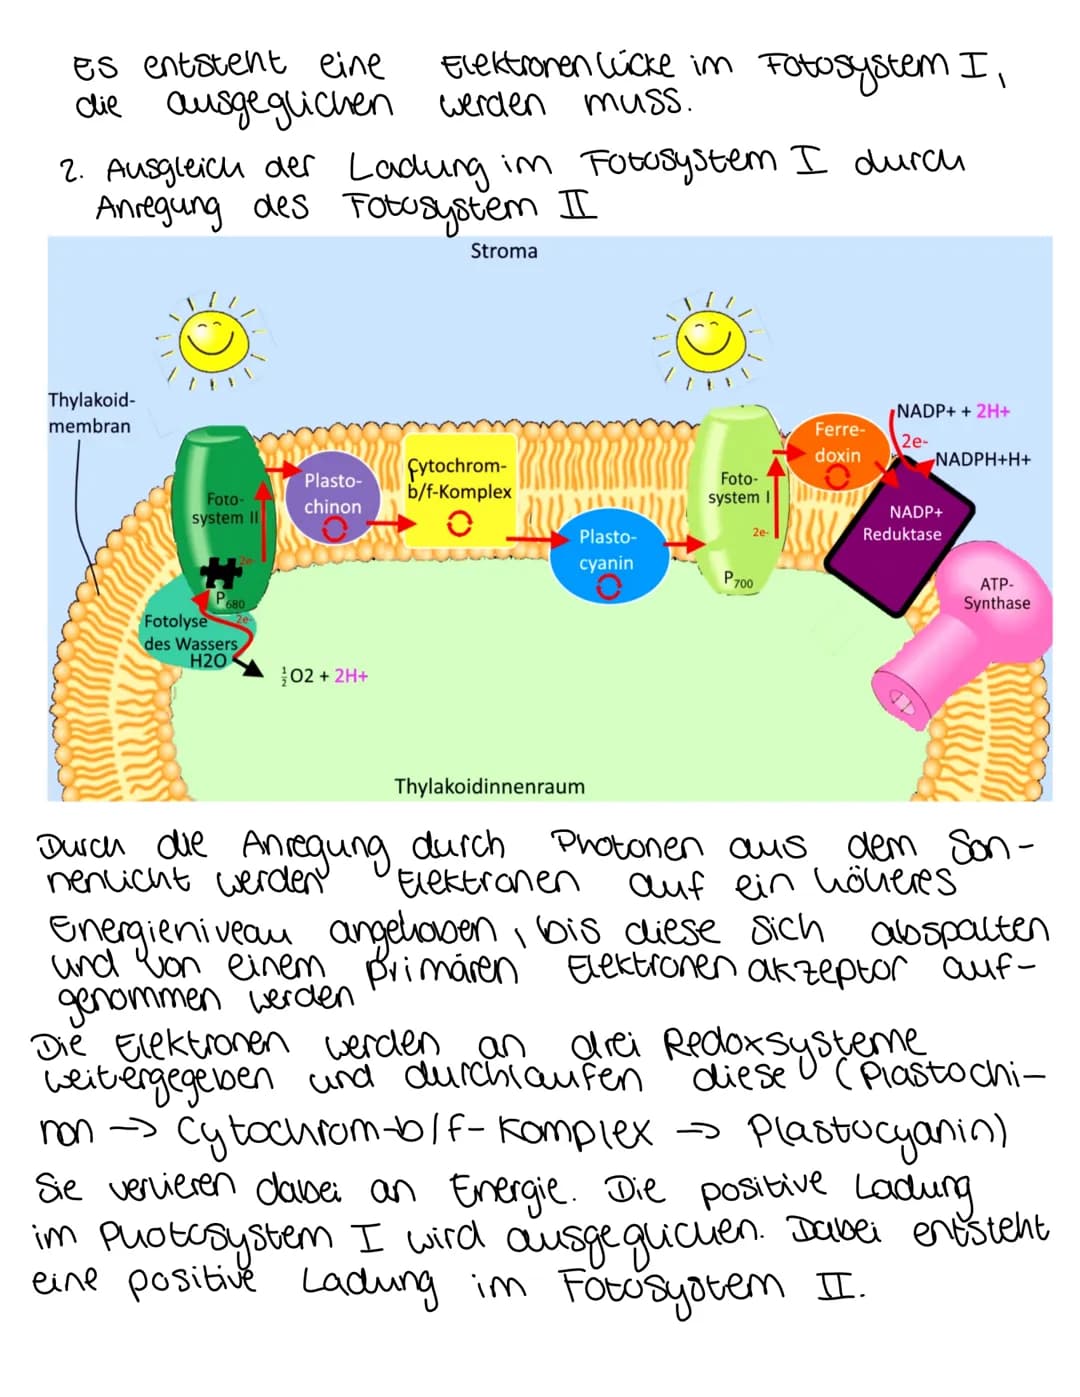 Es entsteht eine Elektronenlücke im Fotosystem I,
die ausgeglichen werden muss.
2. Ausgleich der Ladung im Fotosystem I durch
Anregung des Fotosystem II
Stroma
Thylakoid-
membran
Foto-
system II
2e-
P680
Fotolyse
des Wassers
H2O
2e-
½O2 + 2H+
Plasto-
chinon
Cytochrom-
b/f-Komplex
Plasto-
cyanin
Foto-
system I
2e-
P700
Ferre-
doxin
NADP+ + 2H+
2e-
NADPH+H+
NADP+
Reduktase
ATP-
Synthase
Thylakoidinnenraum
Durch die Anregung durch Photonen aus dem Son-
nenlicht werden Elektronen auf ein höheres
Energieniveau angehoben, bis diese sich abspalten
und von einem primären Elektronenakzeptor auf-
genommen werden
Die Elektronen werden an drei Redoxsysteme
weitergegeben und durchlaufen diese (Plastochi-
non → Cytochrom-b/f-Komplex → Plastocyanin)
Sie verlieren dabei an Energie. Die positive Ladung
im Photosystem I wird ausgeglichen. Dabei entsteht
eine positive Ladung im Fotosystem II.